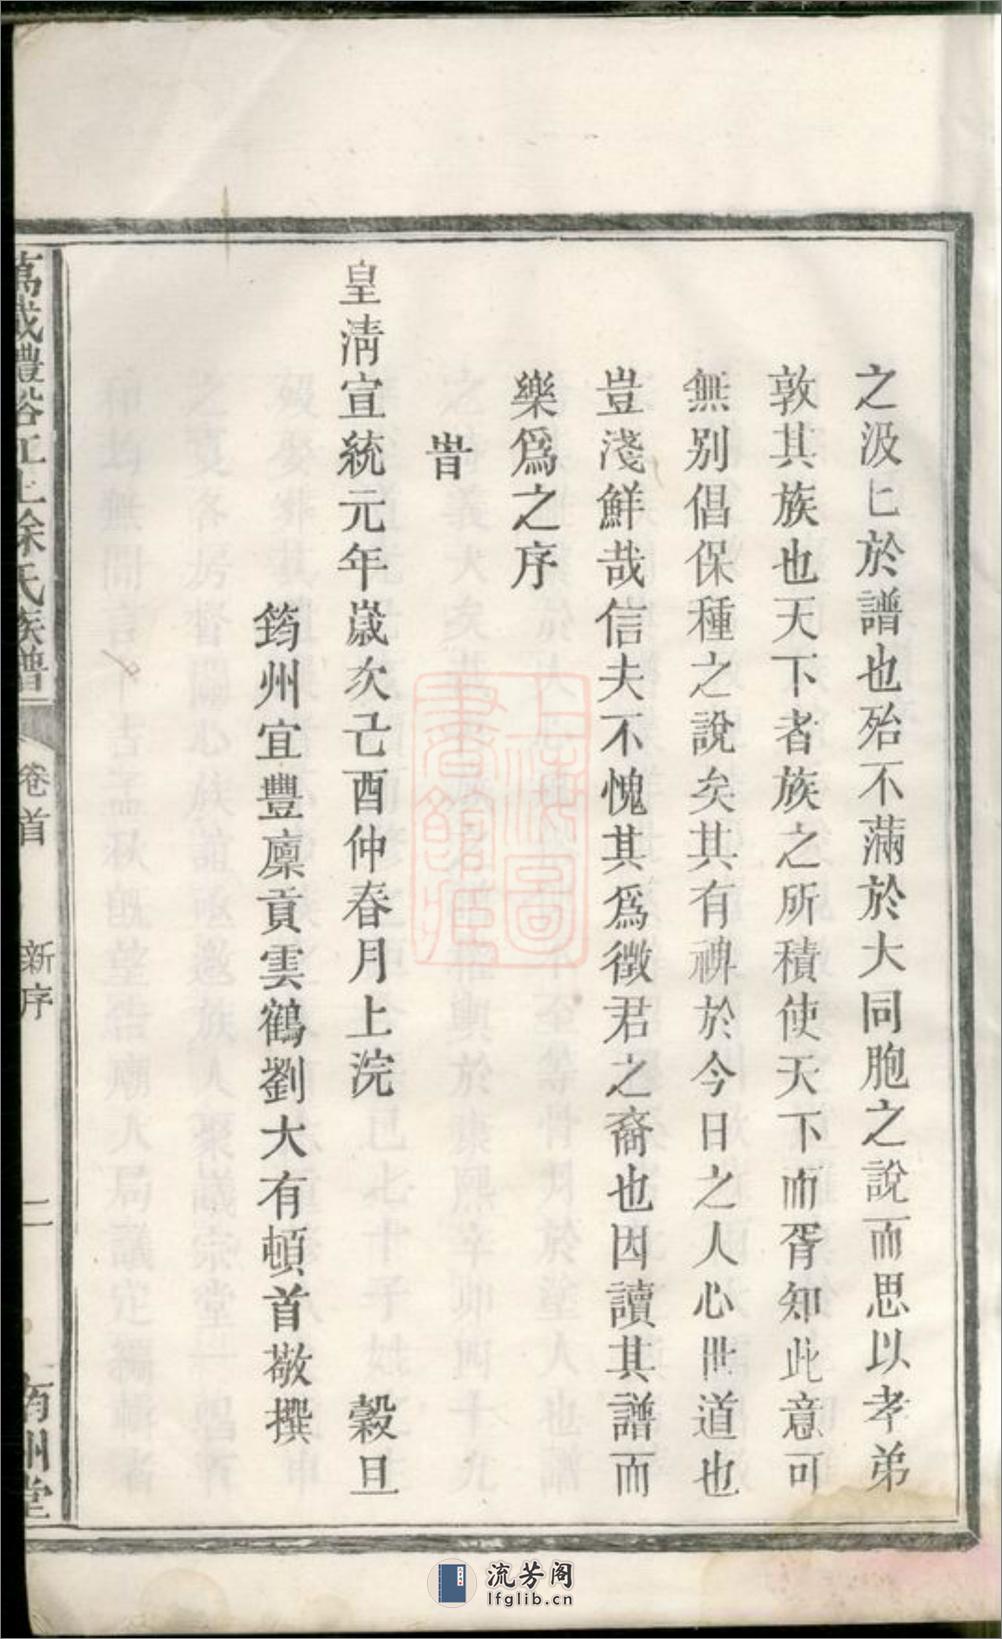 之汲匕於譜也殆不滿於大同胞之說而思以孝弟
敦其族也天下者族之所積使天下而胥知此意可
無別倡保種之說矣其有裨於今日之人心世道也
豈淺鮮哉信夫不愧其爲徵君之裔也因讀其譜而
樂爲之序
旹
皇淸宣統元年歲次己酉仲春月上浣 穀旦
筠州宜豐廩貢雲鶴劉大有頓首敬撰
萬載 徐氏族譜 卷首 新序 二 南州堂
上海圖書館藏
流芳阁
lfglib.cn